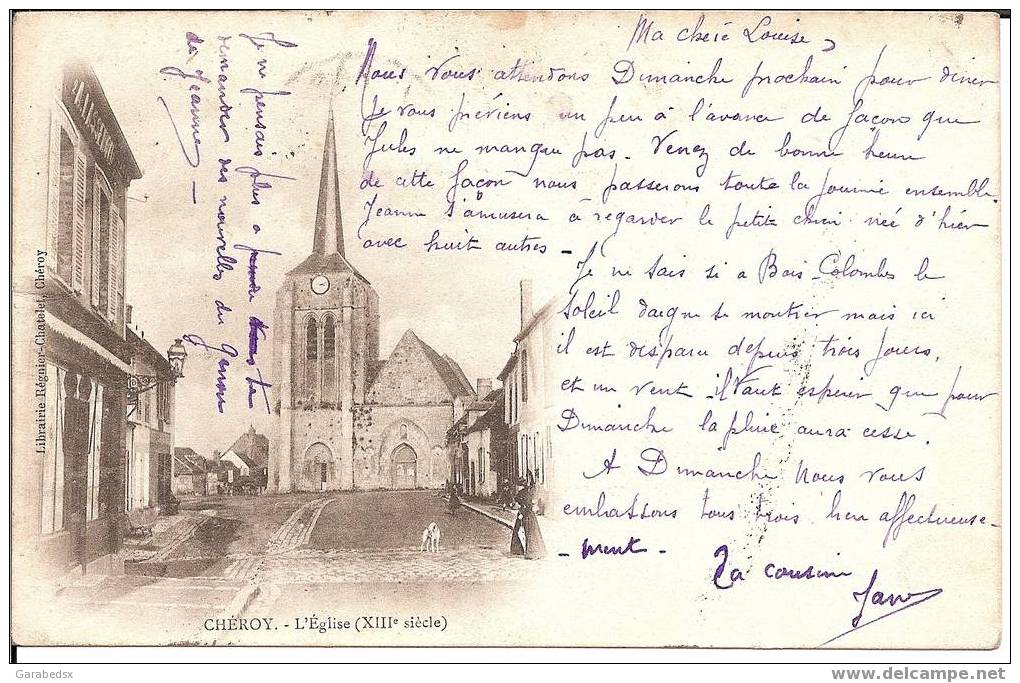 Ma chère Louise,
Nous vous attendons Dimanche prochain pour diner
Je vous préviens un peu à l'avance de façon que
Jules ne manque pas. Venez de bonne heure
de cette façon nous passerons toute la journée ensemble.
Jeanne s'amusera à regarder le petit chien née d'hier
avec huit autres -
Je ne sais si a Bois-Colombes le
soleil daigne se montrer mais ici
il est disparu depuis trois jours,
et un vent. il faut espérer que pour
Dimanche la pluie aura cesse.
A Dimanche nous vous
embrassons tous trois bien affectueuse-
- ment -
Ta cousine
Jane
Je ne pensais plus a te
demander des nouvelles du
de Jeanne
Librairie Régnier-Chatelet, Chéroy
CHÉROY. - L'Église (XIIIe siècle)
Garabedsx
www.delcampe.net